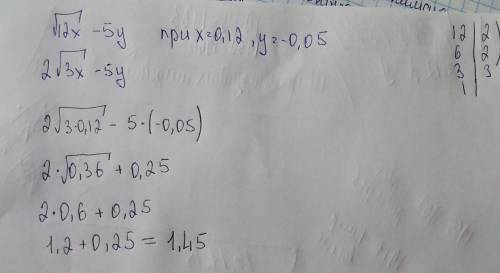 √12x - 5y при x=0,12, y=-0,05
2√3x - 5y
2√3·0,12 - 5·(-0,05)
2·√0,36 + 0,25
2·0,6 + 0,25
1,2+0,25 = 1,45
12 | 2
6 | 2
3 | 3
1 |